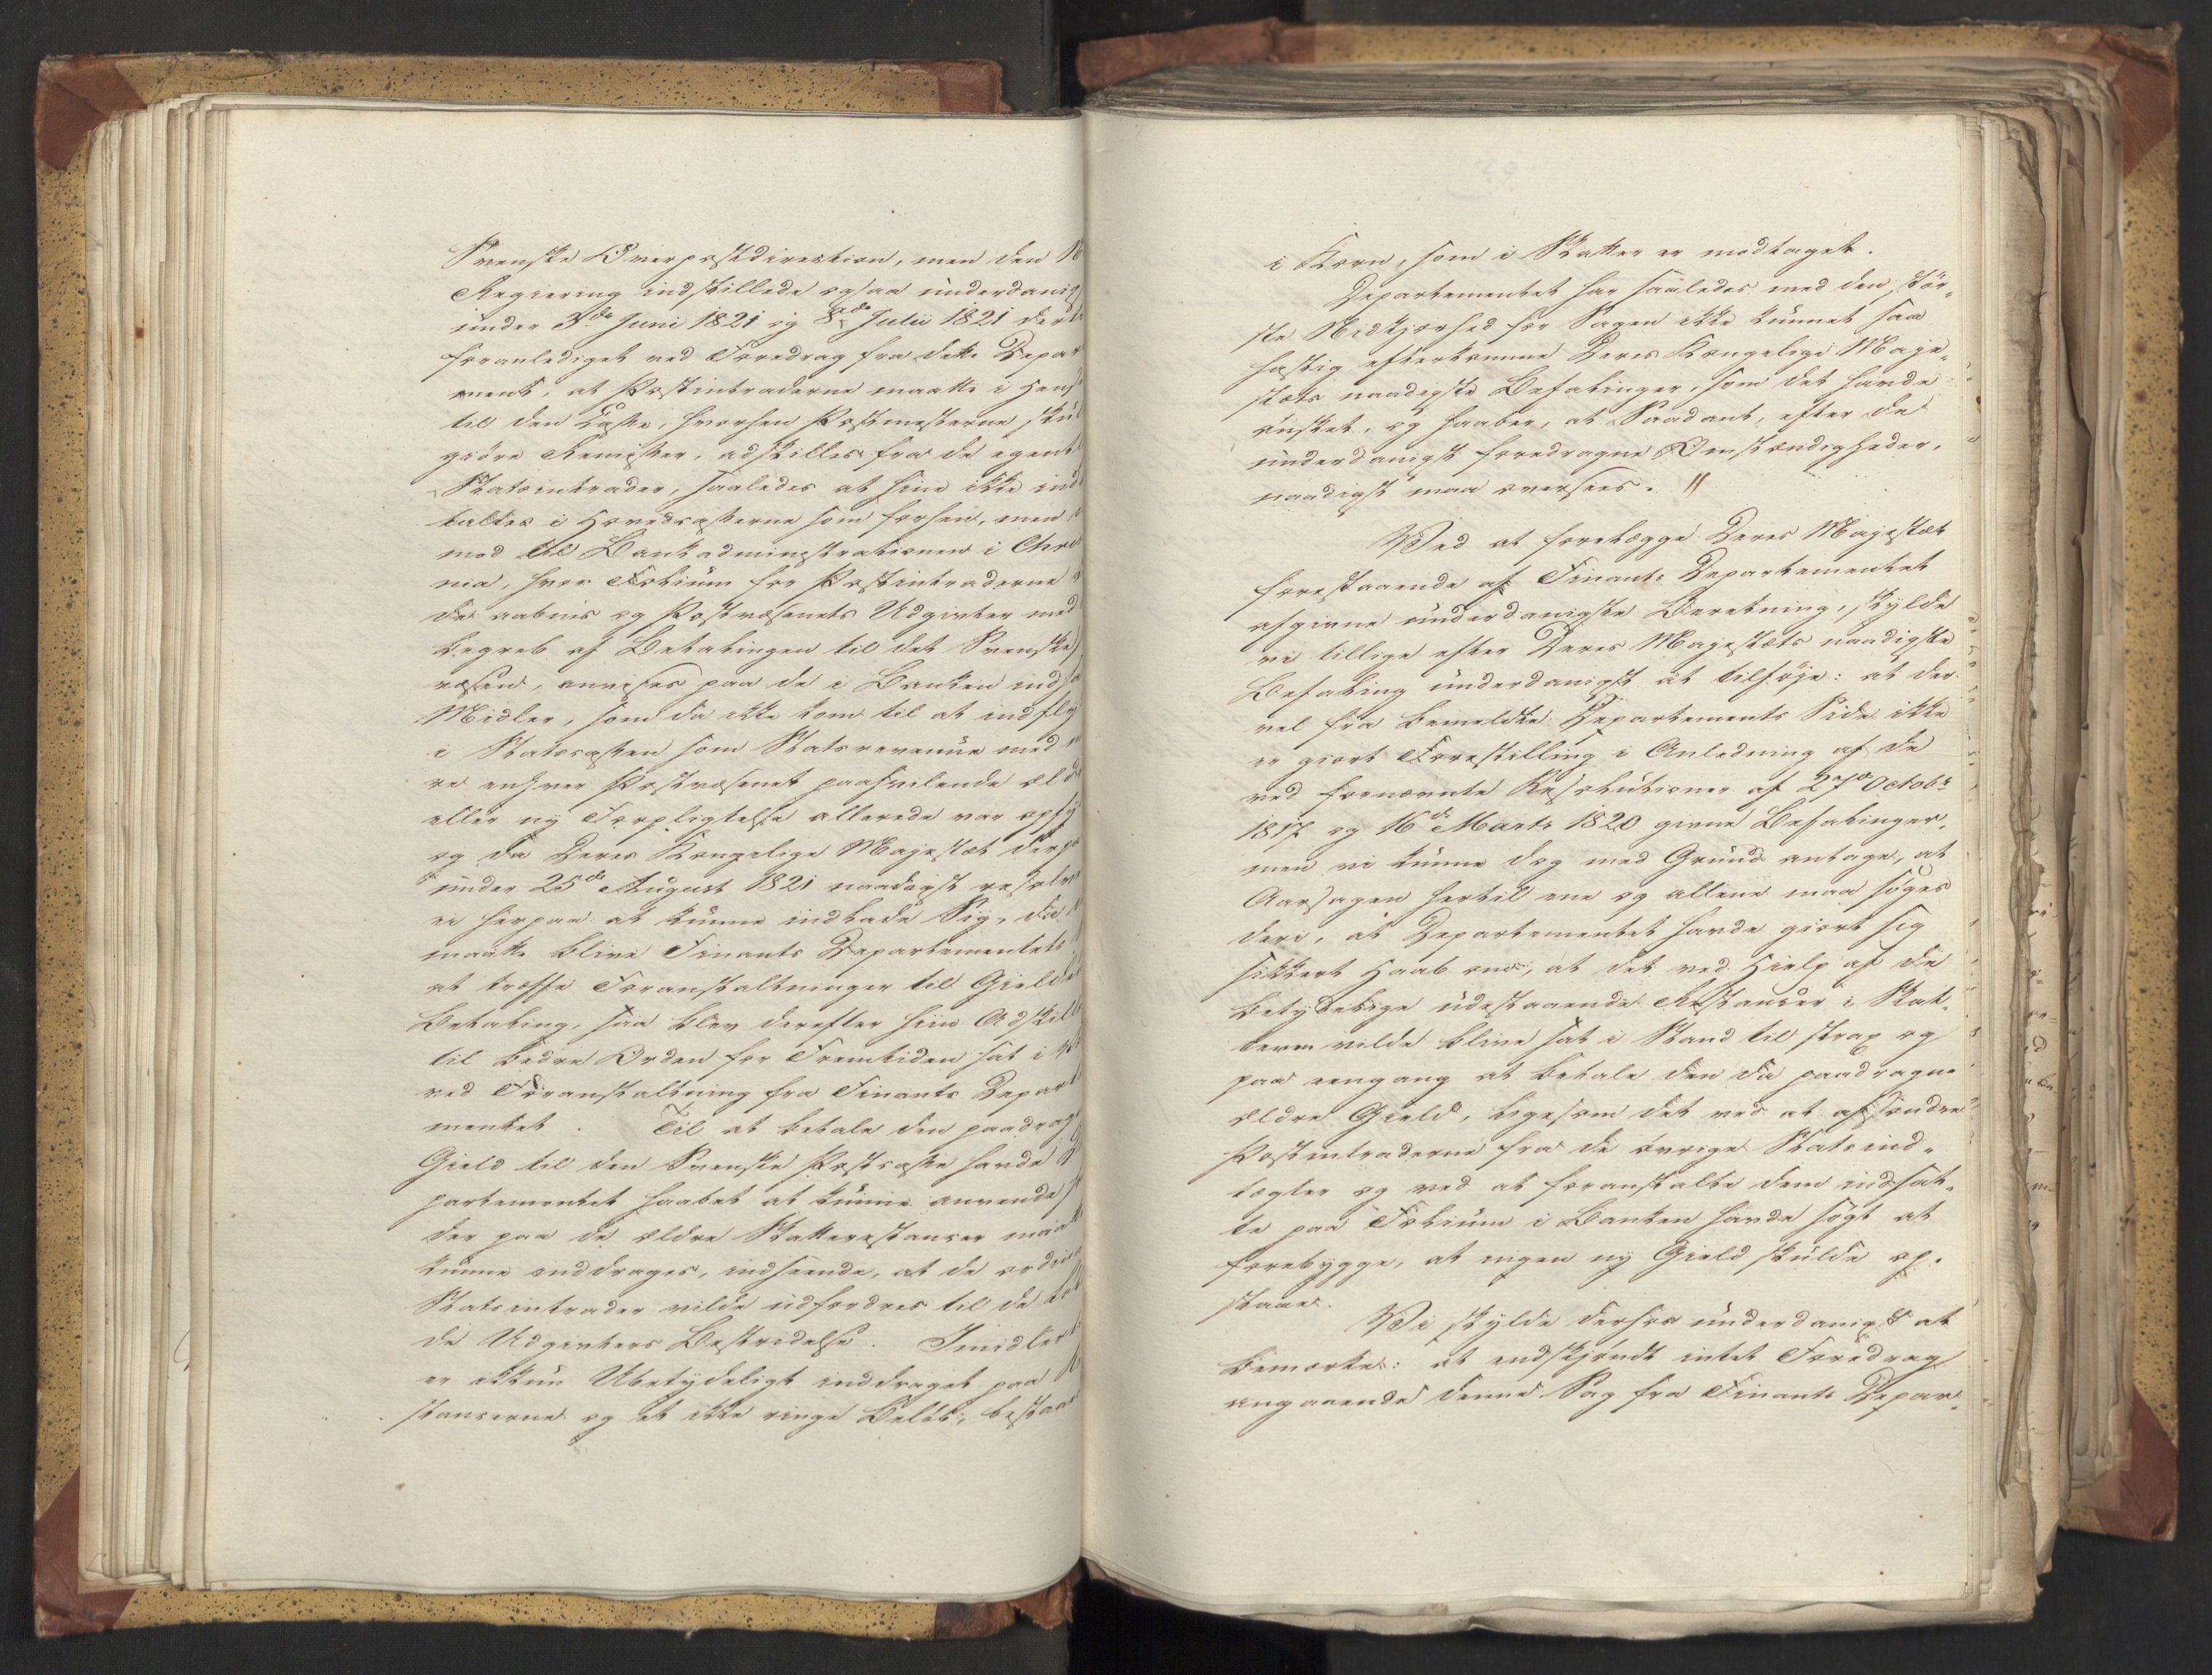 Svenske Overpostdirection, men den N
Regiering indstillede ogsaa underdanig
under 3de Juni 1821 og 8de Julii 1821 der
foranlediget ved Foredrag fra dette Depar
ment, at Postintraderne maatte i Hens
til den Casse, hvorhen Postmesterne skul
giöre Remisser, adskilles fra de egent
Statsintrader, saaledes at hine ikke ind
taltes i Hovedcasserne som forhen, men
mod til Bankadministrationen i Chri
nia, hvor Folium for Postintraderne
de aabnes og Postvæsenets Udgivter med
begreb af Betalingen til det Svenske
væsen, anvises paa de i Banken indsa
Midler, som da ikke kom til at indfly
i Statscassen som Statsrevenüe med
re enhver Postvæsenet paahvilende æld
eller ny Forpligtelse allerede var opfy
og da Deres Kongelige Majestæt derpa
under 25de August 1821 naadigst resolve
ei herpaa at kunne indlade Sig, da
maatte blive Finants Departementets
at træffe Foranstaltninger til Gielde
Betaling, saa blev derefter hiin Adskil
til bedre Orden for Fremtiden sat i
ved Foranstaltning fra Finants Depart
mentet. Til at betale den paadrag
Gield til den Svenske Postcasse havde
partementet haabet at kunne anvende
der paa de ældre Skatterestancer maatte
kunne inddrages, indseende, at de ordin
Statsintrader vilde udfordres til de
de Udgivters Bestridelse. Imidlert
er ikkun Ubetydeligt inddraget paa
stancerne og et ikke ringe Belöb, bestaa
i Korn, som i Skatter er modtaget.
Departementet har saaledes med den stör-
ste Nidkjerhed for Sagen ikke kunnet saa
hastig efterkomme Deres Kongelige Maje-
stæts naadigste Befalinger, som det havde
önsket, og haaber, at Saadant, efter de
underdanigst foredragne Omstændigheder,
naadigst maa oversees. //
Ved at forelægge Deres Majestæt
forestaaende af Finants Departementet
afgivne underdanigste Beretning, skylde
vi tillige efter Deres Majestæts naadigste
Befaling underdanigst at tilföje: at der
vel fra bemeldte Departements Side ikke
er giort Forestilling i Anledning af de
ved fornævnte Resolutioner af 27de Octobr
1817 og 16de Marts 1820 givne Befalinger,
men vi kunne dog med Grund antage, at
Aarsagen hertil ene og allene maa söges
deri, at Departementet havde giort sig
sikkert Haab om, at det ved Hielp af de
betydelige udestaaende Restancer i Skat-
terne vilde blive sat i Stand til strax og
paa eengang at betale den da paadragne
ældre Gield, ligesom det ved at afsondre
Postintraderne fra de övrige Statsind-
tægter og ved at foranstalte dem indsat-
te paa Folium i Banken havde sögt at
forebygge, at ingen ny Gield skulde op-
staae.
Vi skylde derhos underdanigst at
bemærke: at endskjöndt intet Foredrag
angaaende denne Sag fra Finants Depar-